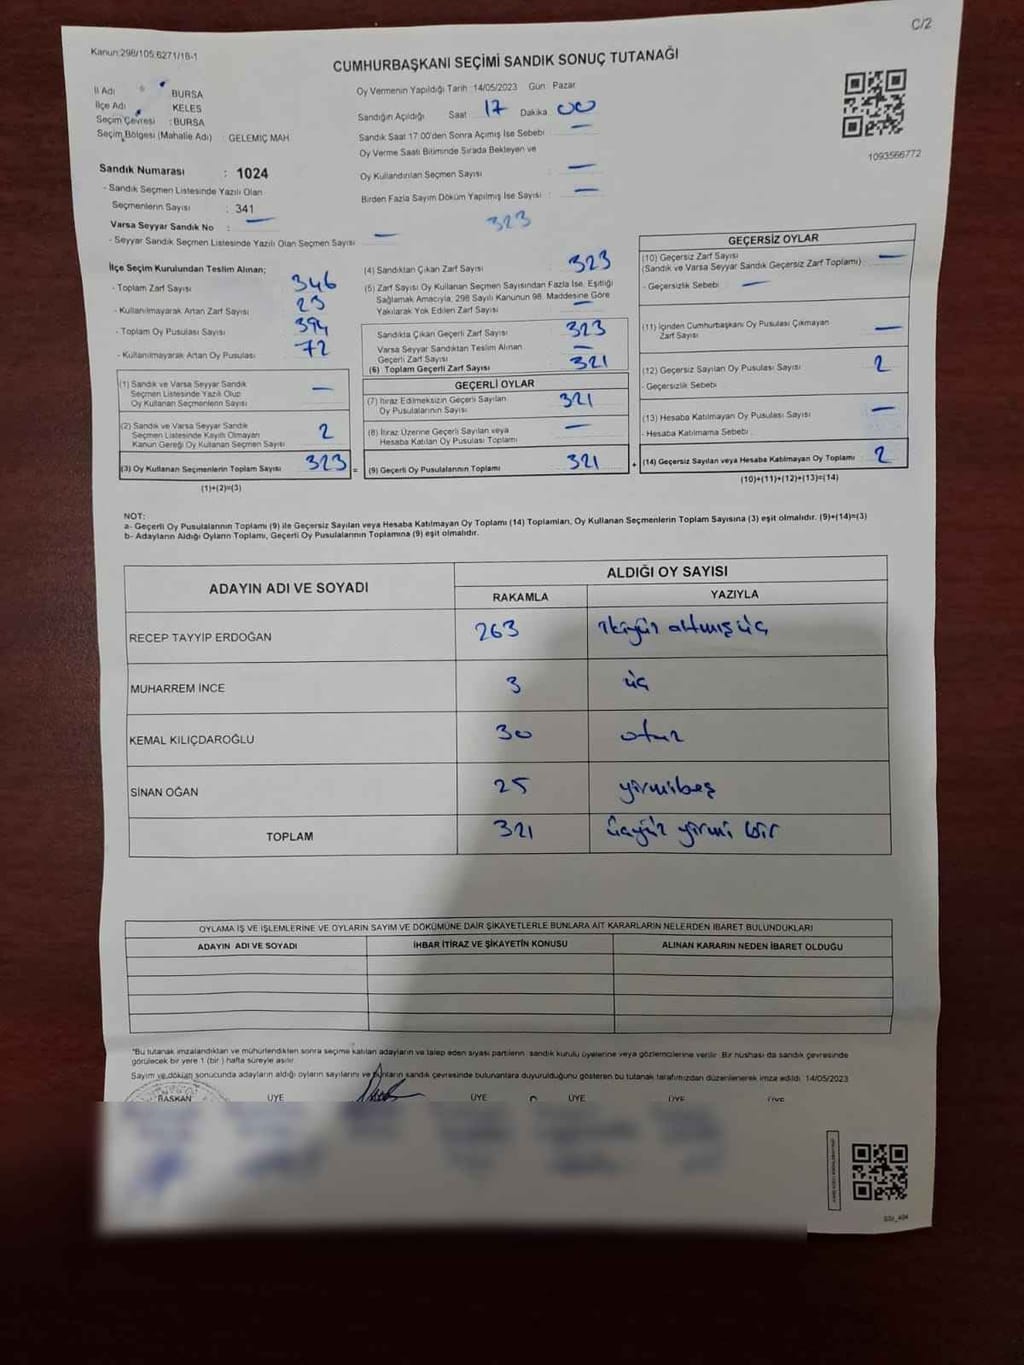 C/2
Kanun:298/105,6271/18-1
CUMHURBAŞKANI SEÇİMİ SANDIK SONUÇ TUTANAĞI
İl Adı : BURSA
İlçe Adı : KELES
Seçim Çevresi : BURSA
Seçim Bölgesi (Mahalle Adı) GELEMİÇ MAH.
Sandık Numarası : 1024
- Sandık Seçmen Listesinde Yazılı Olan
Seçmenlerin Sayısı : 341
Varsa Seyyar Sandık No : —
- Seyyar Sandık Seçmen Listesinde Yazılı Olan Seçmen Sayısı —
Oy Vermenin Yapıldığı Tarih :14/05/2023 Gün: Pazar
Sandığın Açıldığı Saat 17 Dakika 00
Sandık Saat 17.00'den Sonra Açılmış İse Sebebi —
Oy Verme Saati Bitiminde Sırada Bekleyen ve
Oy Kullandırılan Seçmen Sayısı : —
Birden Fazla Sayım Döküm Yapılmış İse Sayısı : —
323
1093566772
İlçe Seçim Kurulundan Teslim Alınan;
- Toplam Zarf Sayısı 346
- Kullanılmayarak Artan Zarf Sayısı 23
- Toplam Oy Pusulası Sayısı 394
- Kullanılmayarak Artan Oy Pusulası 72
(1) Sandık ve Varsa Seyyar Sandık
Seçmen Listesinde Yazılı Olup
Oy Kullanan Seçmenlerin Sayısı —
(2) Sandık ve Varsa Seyyar Sandık
Seçmen Listesinde Kayıtlı Olmayan
Kanun Gereği Oy Kullanan Seçmen Sayısı 2
(3) Oy Kullanan Seçmenlerin Toplam Sayısı 323 =
(1)+(2)=(3)
(4) Sandıktan Çıkan Zarf Sayısı 323
(5) Zarf Sayısı Oy Kullanan Seçmen Sayısından Fazla İse, Eşitliği
Sağlamak Amacıyla, 298 Sayılı Kanunun 98. Maddesine Göre
Yakılarak Yok Edilen Zarf Sayısı —
Sandıkta Çıkan Geçerli Zarf Sayısı 323
Varsa Seyyar Sandıktan Teslim Alınan
Geçerli Zarf Sayısı —
(6) Toplam Geçerli Zarf Sayısı 321
GEÇERLİ OYLAR
(7) İtiraz Edilmeksizin Geçerli Sayılan
Oy Pusulalarının Sayısı 321
(8) İtiraz Üzerine Geçerli Sayılan veya
Hesaba Katılan Oy Pusulası Toplamı —
(9) Geçerli Oy Pusulalarının Toplamı 321 +
GEÇERSİZ OYLAR
(10) Geçersiz Zarf Sayısı
(Sandık ve Varsa Seyyar Sandık Geçersiz Zarf Toplamı) —
- Geçersizlik Sebebi —
(11) İçinden Cumhurbaşkanı Oy Pusulası Çıkmayan
Zarf Sayısı —
(12) Geçersiz Sayılan Oy Pusulası Sayısı 2
- Geçersizlik Sebebi
(13) Hesaba Katılmayan Oy Pusulası Sayısı —
- Hesaba Katılmama Sebebi
(14) Geçersiz Sayılan veya Hesaba Katılmayan Oy Toplamı 2
(10)+(11)+(12)+(13)=(14)
NOT:
a- Geçerli Oy Pusulalarının Toplamı (9) ile Geçersiz Sayılan veya Hesaba Katılmayan Oy Toplamı (14) Toplamları, Oy Kullanan Seçmenlerin Toplam Sayısına (3) eşit olmalıdır. (9)+(14)=(3)
b- Adayların Aldığı Oyların Toplamı, Geçerli Oy Pusulalarının Toplamına (9) eşit olmalıdır.
ADAYIN ADI VE SOYADI ALDIĞI OY SAYISI
RAKAMLA YAZIYLA
RECEP TAYYİP ERDOĞAN 263 ikiyüz altmışüç
MUHARREM İNCE 3 üç
KEMAL KILIÇDAROĞLU 30 otuz
SİNAN OĞAN 25 yirmibeş
TOPLAM 321 üçyüz yirmi bir
OYLAMA İŞ VE İŞLEMLERİNE VE OYLARIN SAYIM VE DÖKÜMÜNE DAİR ŞİKAYETLERLE BUNLARA AİT KARARLARIN NELERDEN İBARET BULUNDUKLARI
ADAYIN ADI VE SOYADI İHBAR İTİRAZ VE ŞİKAYETİN KONUSU ALINAN KARARIN NEDEN İBARET OLDUĞU
"Bu tutanak imzalandıktan ve mühürlendikten sonra seçime katılan adayların ve talep eden siyasi partilerin sandık kurulu üyelerine veya gözlemcilerine verilir. Bir nüshası da sandık çevresinde
görülecek bir yere 1 (bir ) hafta süreyle asılır.
Sayım ve döküm sonucunda adayların aldığı oyların sayılarını ve bunların sandık çevresinde bulunanlara duyurulduğunu gösteren bu tutanak tarafımızdan düzenlenerek imza edildi. 14/05/2023
BAŞKAN ÜYE ÜYE ÜYE ÜYE ÜYE